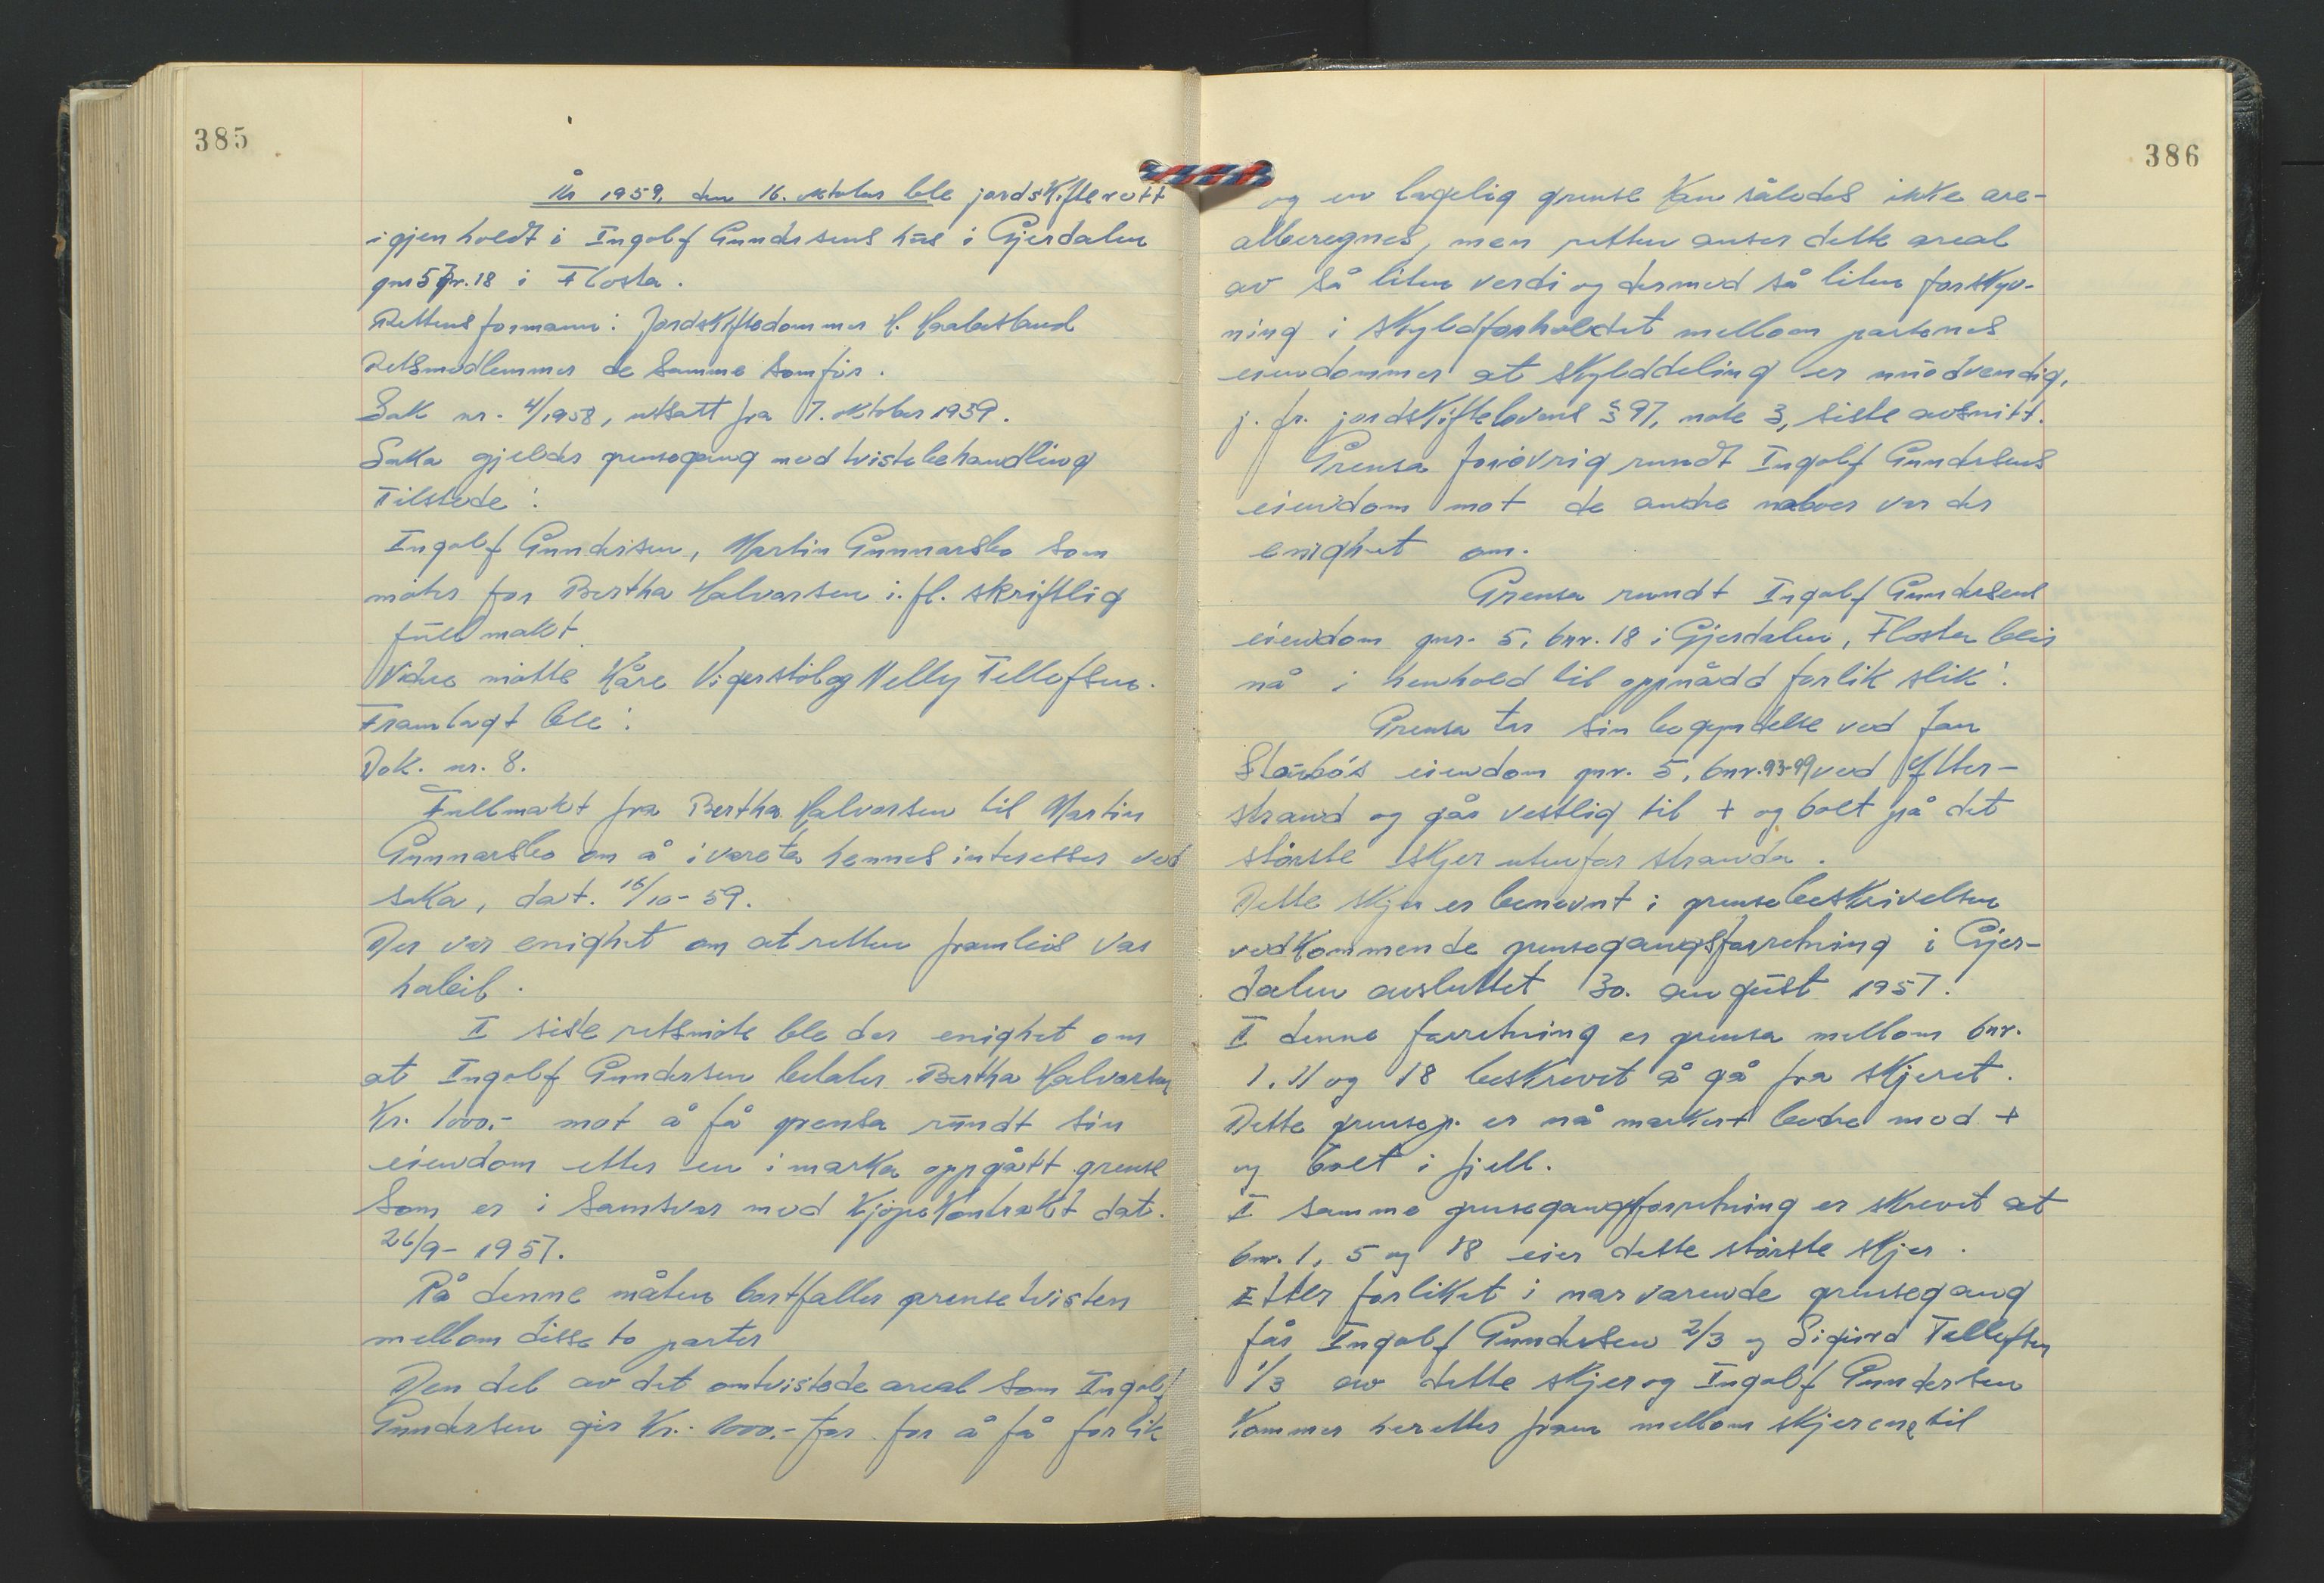 385
År 1959, den 16. oktober ble jordskifterett
igjen holdt i Ingolf Gundersens hus i Gjerdalen
gnr 5 br. 18 i Flosta.
Rettens formann: Jordskiftedommer H.
Retsmedlemmer de samme som før.
Sak nr. 4/1958, utsatt fra 7. oktober 1959.
Saka gjelder grensegang med tvistebehandling
Tilstede:
Ingolf Gundersen, Martin Gunnarsbo som
møter for Bertha Halvorsen i. fl. skriftlig
fullmakt.
Videre møtte Kåre Vigerstøl og Nelly Tellefsen.
Framlagt ble:
Dok. nr. 8.
Fullmakt fra Bertha Halvorsen til Martin
Gunnarsbo om å ivareta hennes interesser ved
saka, dat. 16/10-59.
Der var enighet om at retten framleis var
habil.
I siste retsmøte ble der enighet om
at Ingolf Gundersen betaler Bertha Halvorsen
Kr. 1000.- mot å få grensa rundt sin
eiendom etter en i marka oppgått grense
som er i samsvar med Kjøpekontrakt dat.
26/9-1957.
På denne måten bortfaller grensetvisten
mellom disse to parter
Den del av det omtvistede areal som Ingolf
Gundersen gir Kr. 1000.- for for å få forlik
386
og en lagelig grense kan således ikke are-
alberegnes, men retten anser dette areal
av så liten verdi og dermed så liten forskyv-
ning i skyldforholdet mellom partenes
eiendommer at skylddeling er unødvendig,
j. fr. jordskiftelovens § 97, note 3, siste avsnitt.
Grensa forøvrig rundt Ingolf Gundersens
eiendom mot de andre naboer var der
enighet om.
Grensa rundt Ingolf Gundersens
eiendom gnr. 5, bnr. 18 i Gjerdalen, Flosta bleir
nå i henhold til oppnådd forlik slik:
Grensa tar sin begyndelse ved Jan
Staubø's eiendom gnr. 5, bnr. 93-99 ved Ytter-
strand og går vestlig til + og bolt på det
største skjer utenfor stranda.
Dette skjer er benevnt i grensebeskrivelsen
vedkommende grensegangsforretning i Gjer-
dalen avsluttet 30. august 1957.
I denne forretning er grensa mellom bnr.
1, 11 og 18 beskrevet å gå fra skjeret.
Dette grensep. er nå markert bedre med +
og bolt i fjell.
I samme grensegangsforretning er skrevet at
bnr. 1, 5 og 18 eier dette største skjer.
Etter forliket i nærværende grensegang
får Ingolf Gundersen 2/3 og Sigurd Tellefsen
1/3 av dette skjer og Ingolf Gundersen
kommer heretter fram mellom skjerene til